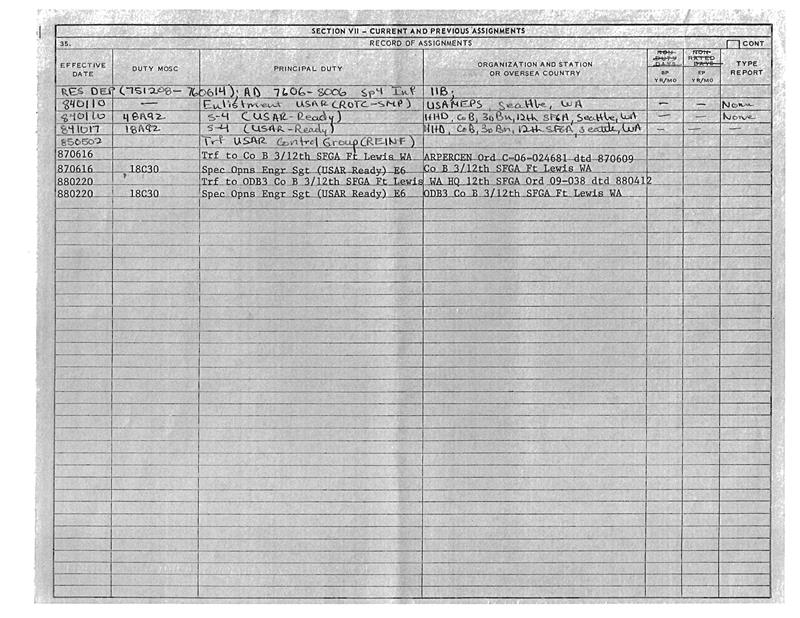 SECTION VII – CURRENT AND PREVIOUS ASSIGNMENTS
35. RECORD OF ASSIGNMENTS CONT
EFFECTIVE DATE DUTY MOSC PRINCIPAL DUTY ORGANIZATION AND STATION OR OVERSEA COUNTRY NON-DUTY DAYS NON-RATED DAYS BP YR/MO EP YR/MO TYPE REPORT
RES DEP (751208-760614); AD 7606-8006 Sp4 Inf 11B;
840110 — Enlistment USAR (ROTC-SMP) USAMEPS, Seattle, WA — — None
840110 48A92 S-4 (USAR-Ready) HHD, CoB, 3D Bn, 12th SFGA, Seattle, WA — — None
841017 18A92 S-4 (USAR-Ready) HHD, CoB, 3D Bn, 12th SFGA, Seattle, WA — — —
850502 Trf USAR Control Group (REINF)
870616 Trf to Co B 3/12th SFGA Ft Lewis WA ARPERCEN Ord C-06-024681 dtd 870609
870616 18C30 Spec Opns Engr Sgt (USAR Ready) E6 Co B 3/12th SFGA Ft Lewis WA
880220 Trf to ODB3 Co B 3/12th SFGA Ft Lewis WA HQ 12th SFGA Ord 09-038 dtd 880412
880220 18C30 Spec Opns Engr Sgt (USAR Ready) E6 ODB3 Co B 3/12th SFGA Ft Lewis WA